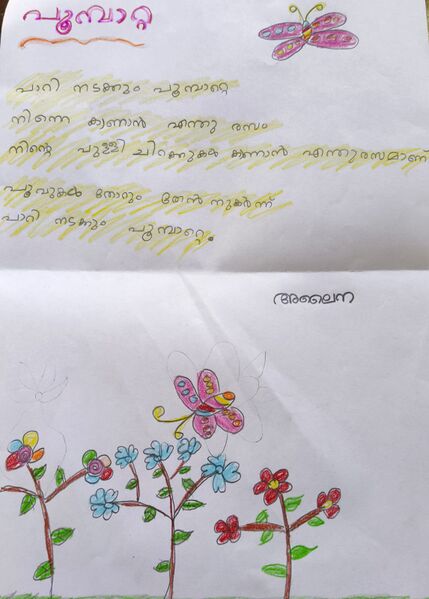 പൂമ്പാറ്റ
പാറി നടക്കും പൂമ്പാറ്റെ
നിന്നെ കാണാൻ എന്തു രസം
നിന്റെ പുള്ളി ചിറകുകൾ കാണാൻ എന്തുരസമാണ്
പൂവുകൾ തോറും തേൻ നുകർന്ന്
പാറി നടക്കും പൂമ്പാറ്റെ.
അലൈന